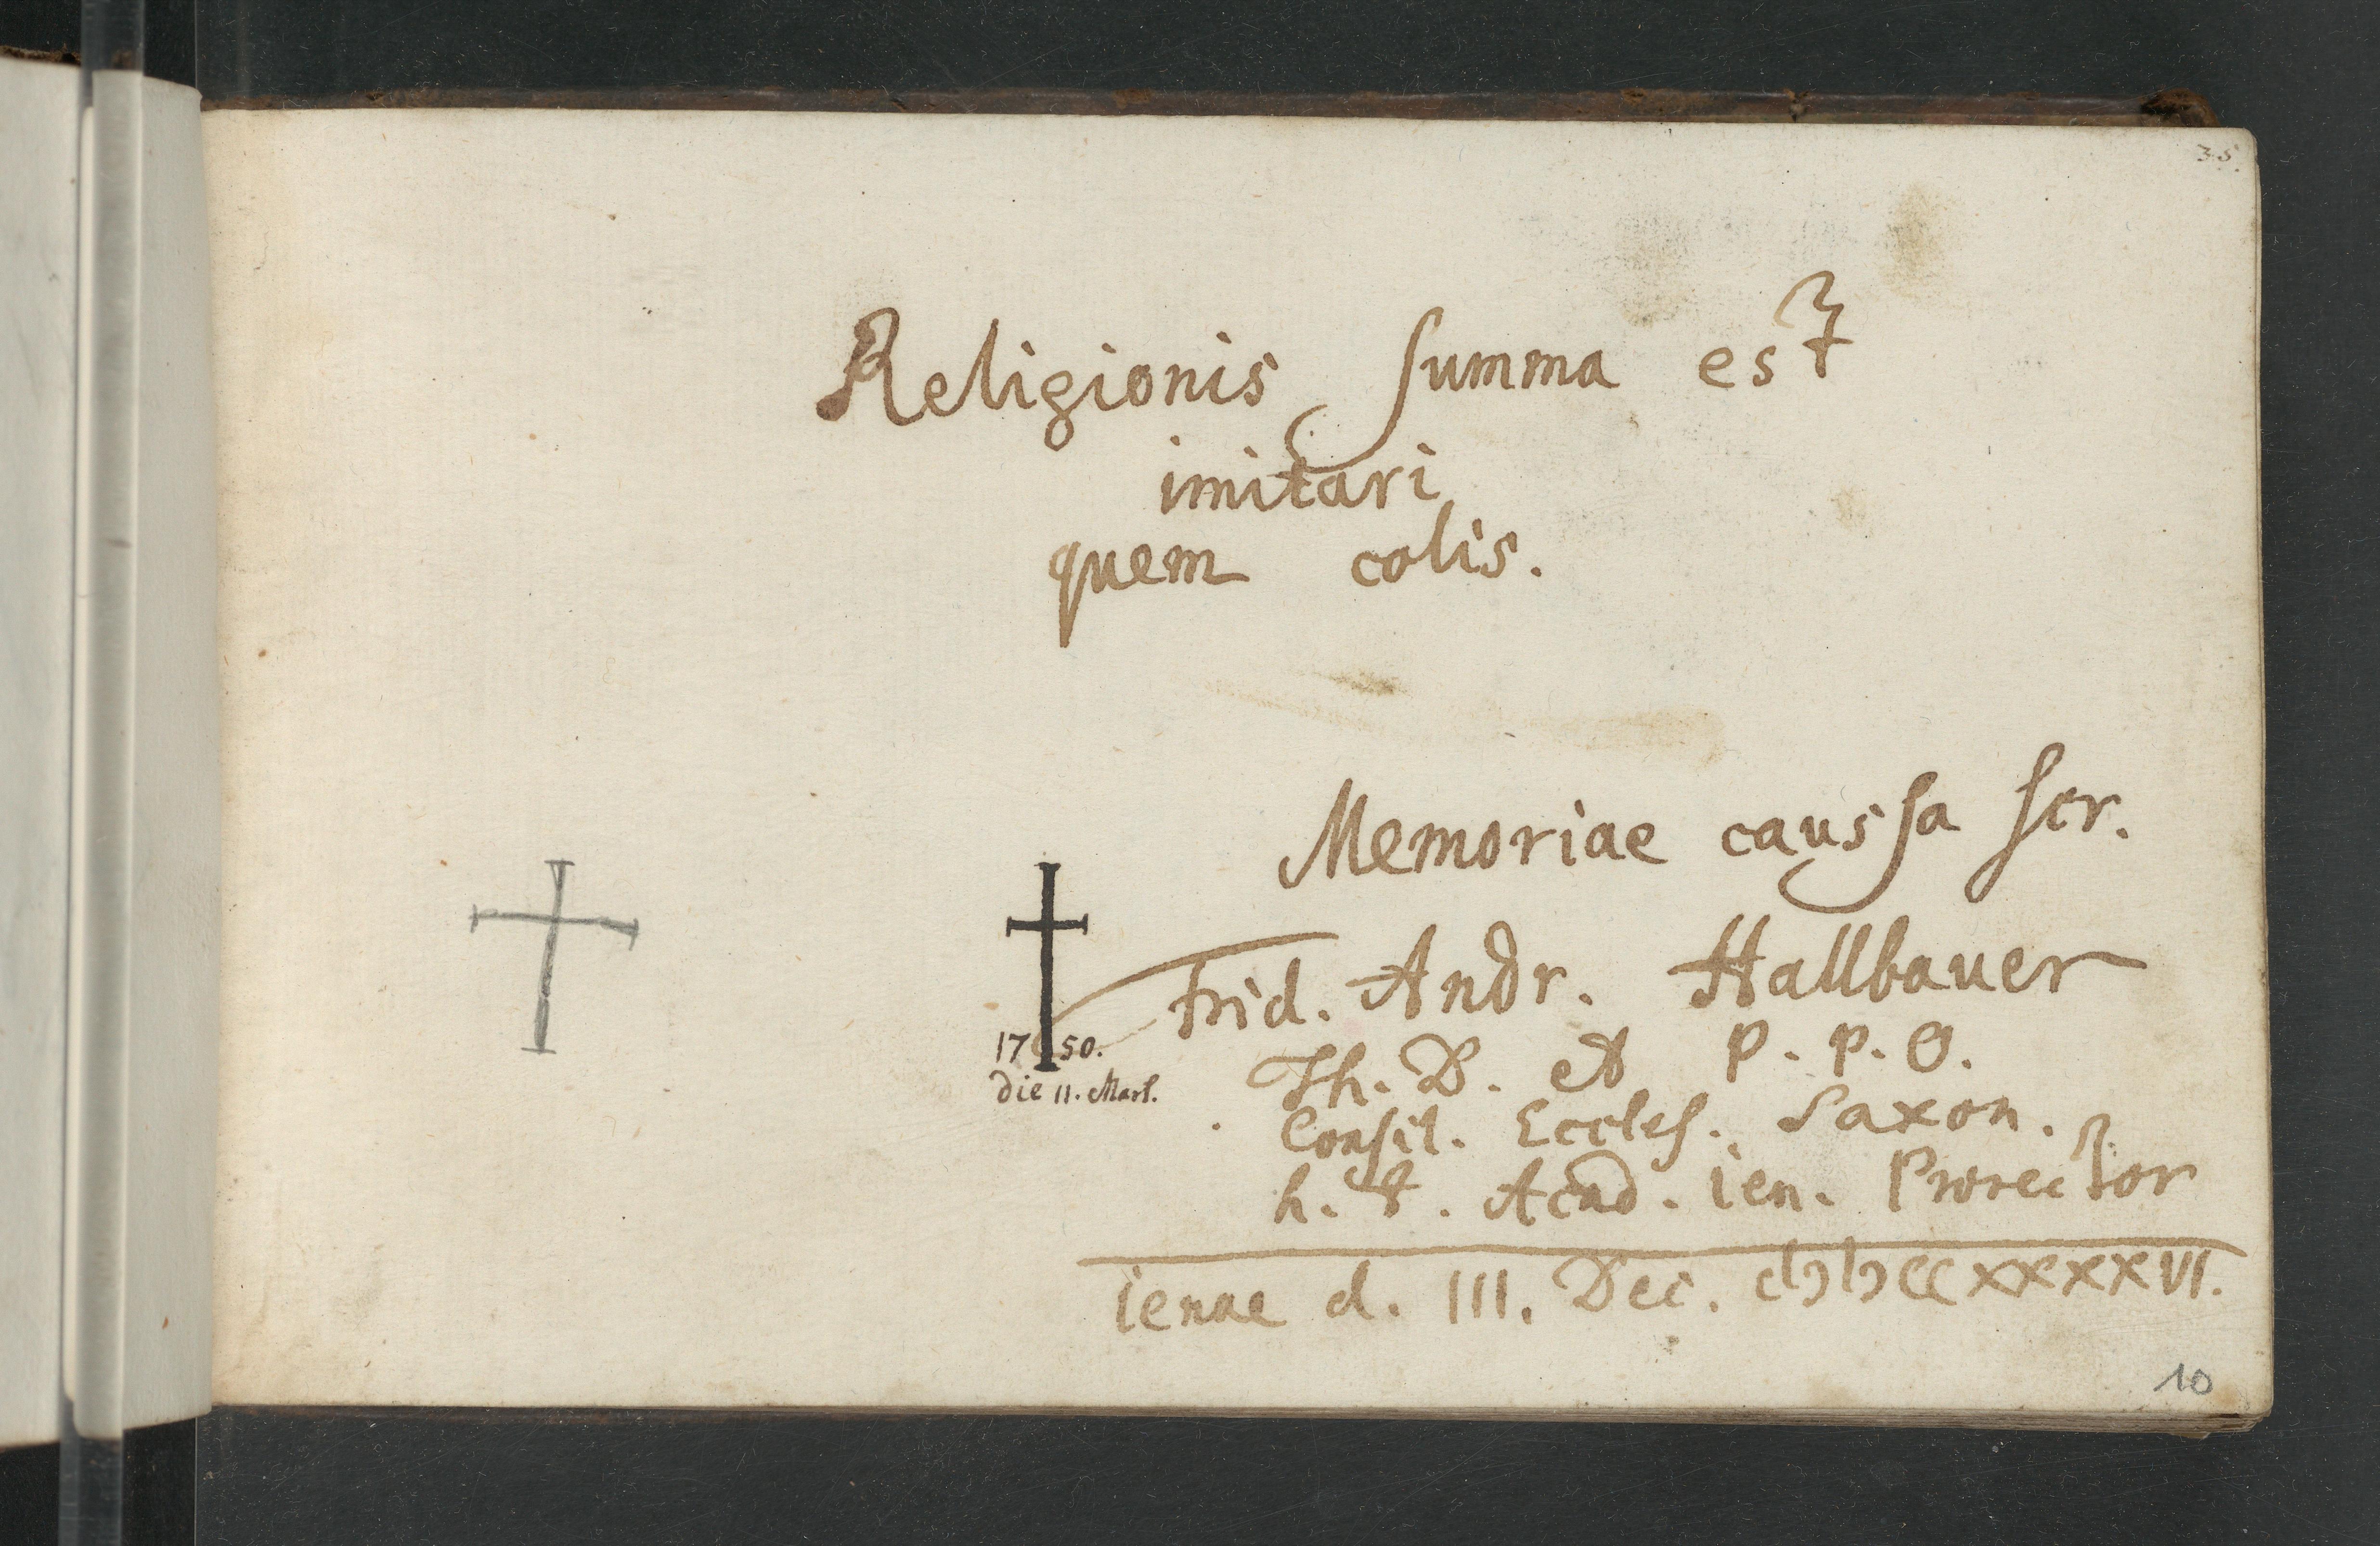 35.
Religionis summa est
imitari
quem colis.
Memoriae caussa scr.
Frid. Andr. Hallbauer
Th. D. et P. P. O.
Consil. Eccles. Saxon.
h. t. Acad. Ien. Prorector
Ienae d. III. Dec. cIↃIↃccxxxxVI.
1750.
die 11. Mart.
10